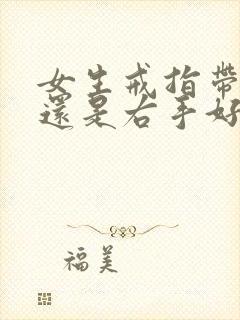 女生戒指帶
還是右手好
福美